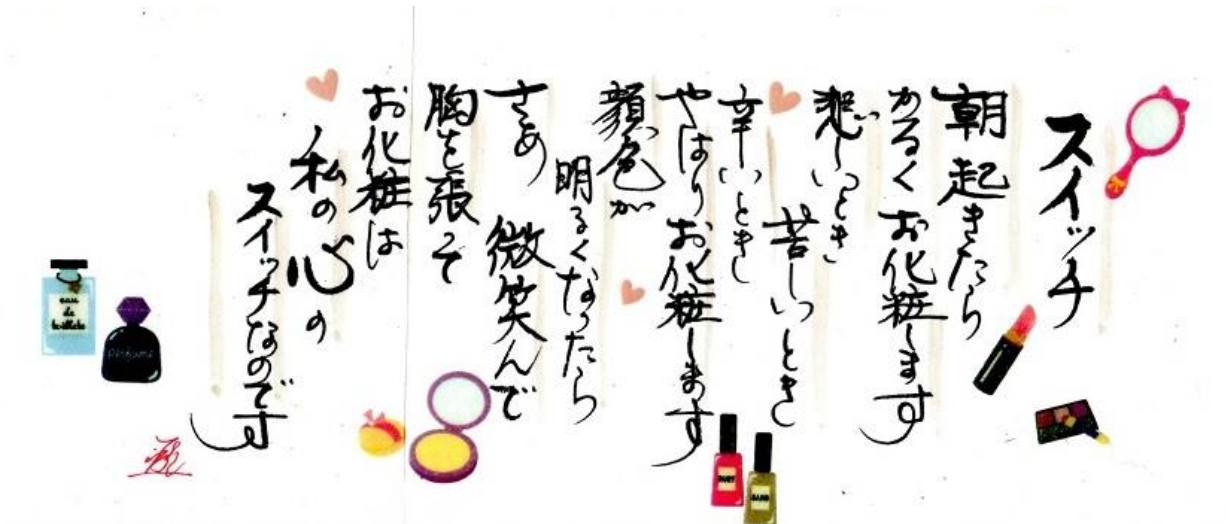 スイッチ
朝起きたら
かるくお化粧します
悲しいとき
苦しいとき
辛いときも
やはりお化粧します
顔色が
明るくなったら
さあ 微笑んで
胸を張って
お化粧は
私の心の
スイッチなのです
eau
de
toilette
perfume
RUBY